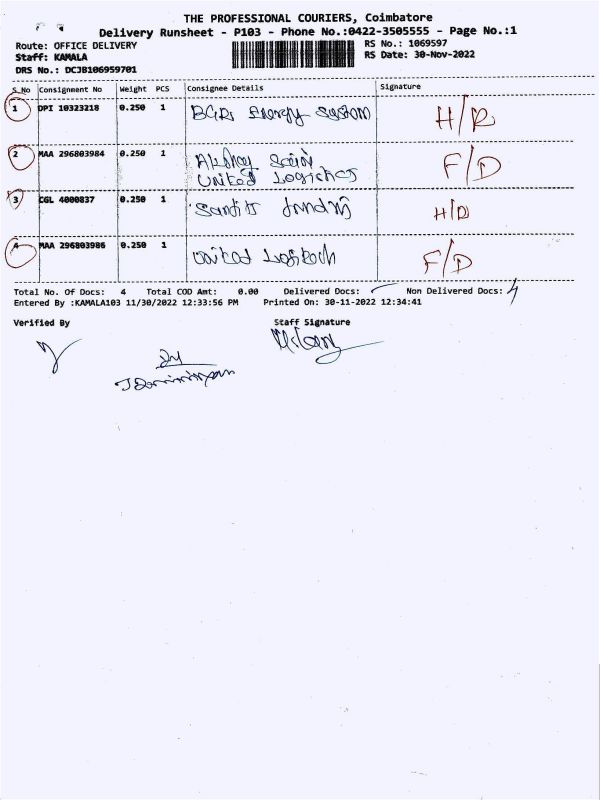 THE PROFESSIONAL COURIERS, Coimbatore
Delivery Runsheet - P103 - Phone No.:0422-3505555 - Page No.:1
Route: OFFICE DELIVERY RS No.: 1069597
Staff: KAMALA RS Date: 30-Nov-2022
DRS No.: DCJB106959701
S_No Consignment No Weight PCS Consignee Details Signature
1 DPI 10323218 0.250 1 BGR Energy System H/R
2 MAA 296803984 0.250 1 F/D
United Logistics
3 CGL 4000837 0.250 1 H/D
4 MAA 296803986 0.250 1 United F/D
Total No. Of Docs: 4 Total COD Amt: 0.00 Delivered Docs: Non Delivered Docs: 4
Entered By :KAMALA103 11/30/2022 12:33:56 PM Printed On: 30-11-2022 12:34:41
Verified By Staff Signature